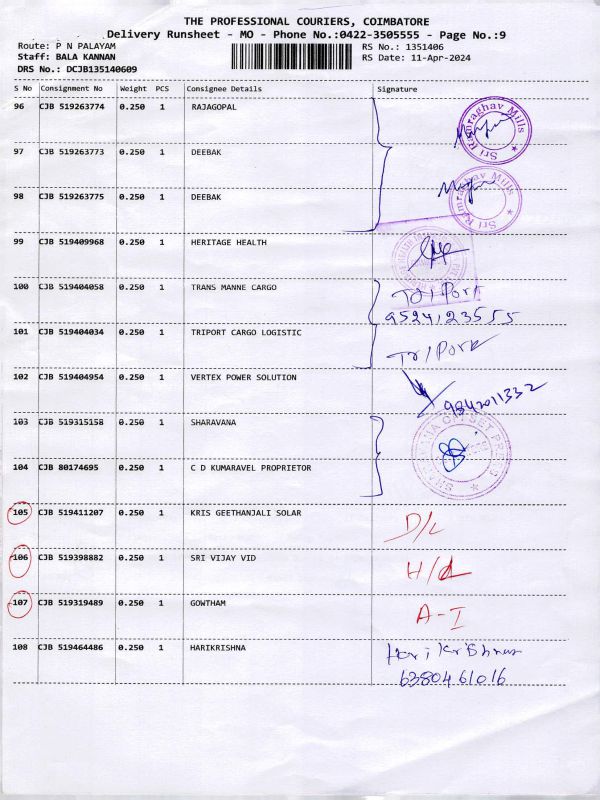 THE PROFESSIONAL COURIERS, COIMBATORE
Delivery Runsheet - MO - Phone No.:0422-3505555 - Page No.:9
Route: P N PALAYAM RS No.: 1351406
Staff: BALA KANNAN RS Date: 11-Apr-2024
DRS No.: DCJB135140609
S No Consignment No Weight PCS Consignee Details Signature
96 CJB 519263774 0.250 1 RAJAGOPAL
Sri Ramraghav Mills
97 CJB 519263773 0.250 1 DEEBAK
98 CJB 519263775 0.250 1 DEEBAK
Sri Ramraghav Mills
99 CJB 519409968 0.250 1 HERITAGE HEALTH
100 CJB 519404058 0.250 1 TRANS MANNE CARGO Tri Port
9524123555
101 CJB 519404034 0.250 1 TRIPORT CARGO LOGISTIC Tri Port
102 CJB 519404954 0.250 1 VERTEX POWER SOLUTION
9842011332
103 CJB 519315158 0.250 1 SHARAVANA
104 CJB 80174695 0.250 1 C D KUMARAVEL PROPRIETOR
105 CJB 519411207 0.250 1 KRIS GEETHANJALI SOLAR D/L
106 CJB 519398882 0.250 1 SRI VIJAY VID H/d
107 CJB 519319489 0.250 1 GOWTHAM A-I
108 CJB 519464486 0.250 1 HARIKRISHNA Hari krishna
6380461016